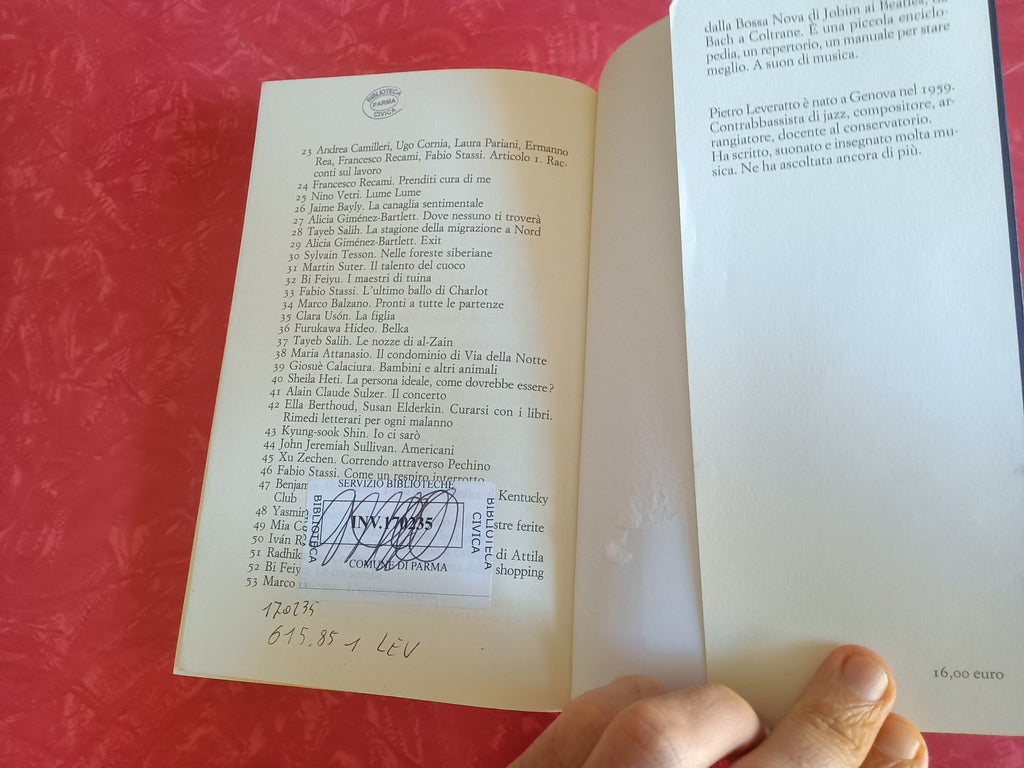 BIBLIOTECA
PARMA
CIVICA
23 Andrea Camilleri, Ugo Cornia, Laura Pariani, Ermanno
Rea, Francesco Recami, Fabio Stassi. Articolo 1. Rac-
conti sul lavoro
24 Francesco Recami. Prenditi cura di me
25 Nino Vetri. Lume Lume
26 Jaime Bayly. La canaglia sentimentale
27 Alicia Giménez-Bartlett. Dove nessuno ti troverà
28 Tayeb Salih. La stagione della migrazione a Nord
29 Alicia Giménez-Bartlett. Exit
30 Sylvain Tesson. Nelle foreste siberiane
31 Martin Suter. Il talento del cuoco
32 Bi Feiyu. I maestri di tuina
33 Fabio Stassi. L'ultimo ballo di Charlot
34 Marco Balzano. Pronti a tutte le partenze
35 Clara Usón. La figlia
36 Furukawa Hideo. Belka
37 Tayeb Salih. Le nozze di al-Zain
38 Maria Attanasio. Il condominio di Via della Notte
39 Giosuè Calaciura. Bambini e altri animali
40 Sheila Heti. La persona ideale, come dovrebbe essere?
41 Alain Claude Sulzer. Il concerto
42 Ella Berthoud, Susan Elderkin. Curarsi con i libri.
Rimedi letterari per ogni malanno
43 Kyung-sook Shin. Io ci sarò
44 John Jeremiah Sullivan. Americani
45 Xu Zechen. Correndo attraverso Pechino
46 Fabio Stassi. Come un respiro interrotto
47 Benjam Kentucky
Club
48 Yasmin
49 Mia C stre ferite
50 Iván R
51 Radhik di Attila
52 Bi Feiy shopping
53 Marco
SERVIZIO BIBLIOTECHE
BIBLIOTECA
INV.170235
BIBLIOTECA
CIVICA
COMUNE DI PARMA
170235
615.85 1 LEV
dalla Bossa Nova di Jobim ai Beatles, da
Bach a Coltrane. È una piccola enciclo-
pedia, un repertorio, un manuale per stare
meglio. A suon di musica.
Pietro Leveratto è nato a Genova nel 1959.
Contrabbassista di jazz, compositore, ar-
rangiatore, docente al conservatorio.
Ha scritto, suonato e insegnato molta mu-
sica. Ne ha ascoltata ancora di più.
16,00 euro